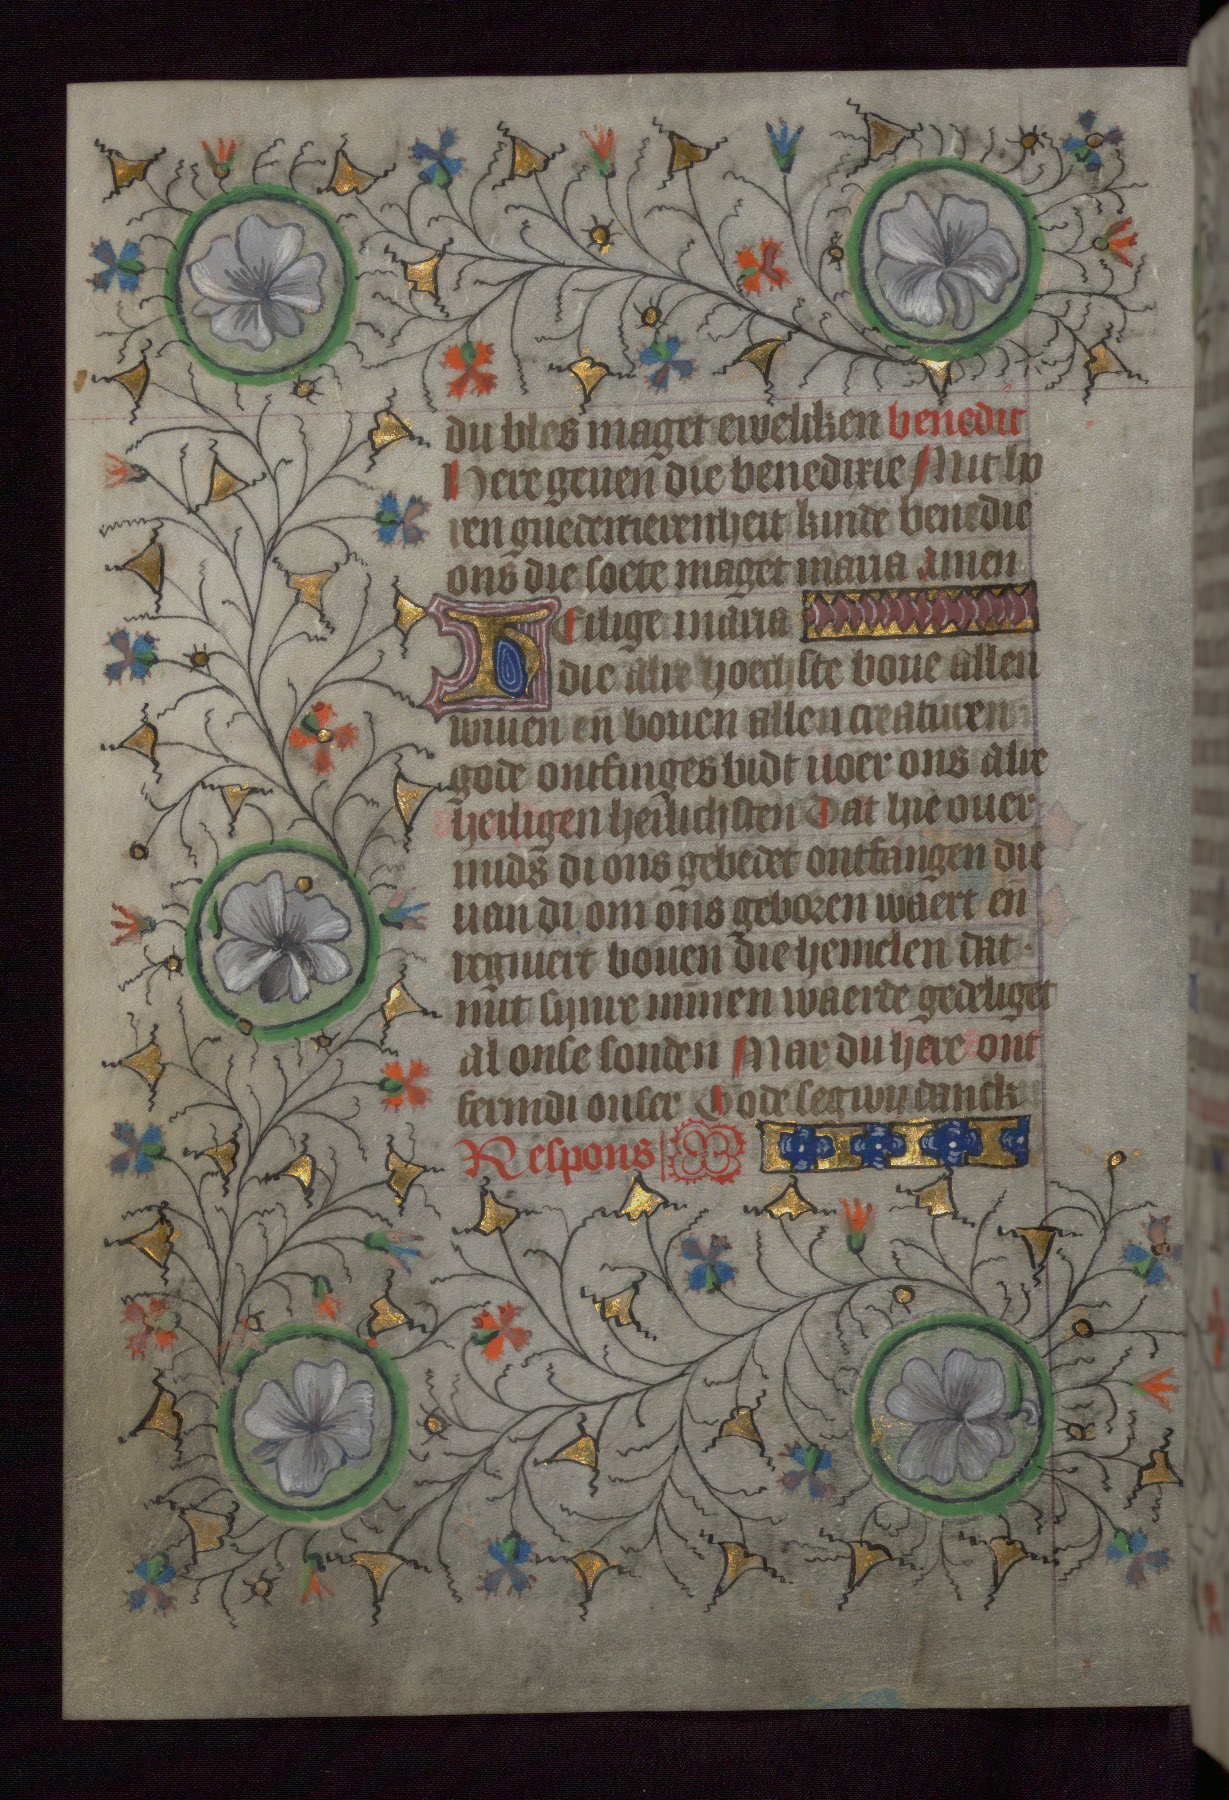 du bles maget eweliken benedic
Here geuen die benedixie Mit hv
ren guedertierenheit kinde benedie
ons die soete maget maria amen
Heilige maria
die alre hoechste boue allen
wiuen en̄ bouen allen creaturen
gode ontfinges bidt uoer ons alre
heiligen heilichsten Dat hie ouer
mids di ons gebedet ontfangen die
uan di om ons geboren waert en̄
regniert bouen die hemelen dat
mit synre minnen waerde gedeliget
al onse sonden Mar du here ont
ferm di onser Gode seg wy danck
Respons